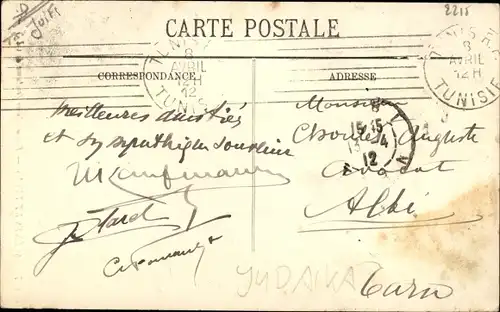 2215
Juif
CARTE POSTALE
TUNIS
8
AVRIL
12H
12
TUNISIE
TUNIS
8
AVRIL
12H
TUNISIE
CORRESPONDANCE
ADRESSE
Meilleures amitiés
et sympathique souvenir
Monsieur
Auguste
avocat
Albi
Tarn
15 15
13 4
12
JUDAIKA